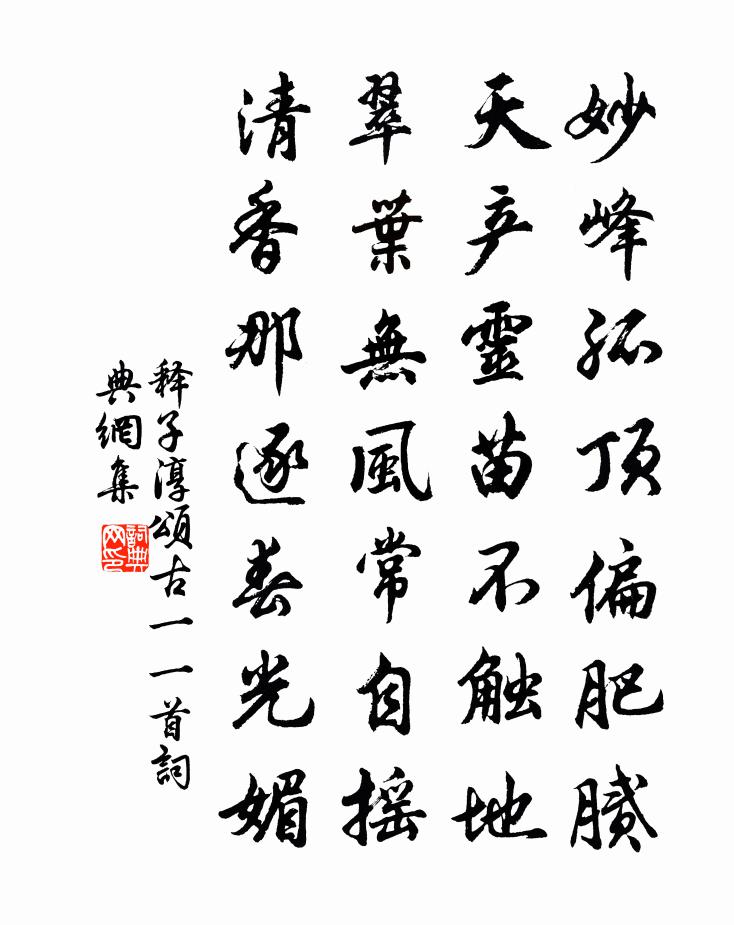 妙峰孤頂偏肥膩
天产靈苗不触地
翠葉無風常自摇
清香那逐春光媚
释子淳頌古一一首詞
典網集
詞典网印